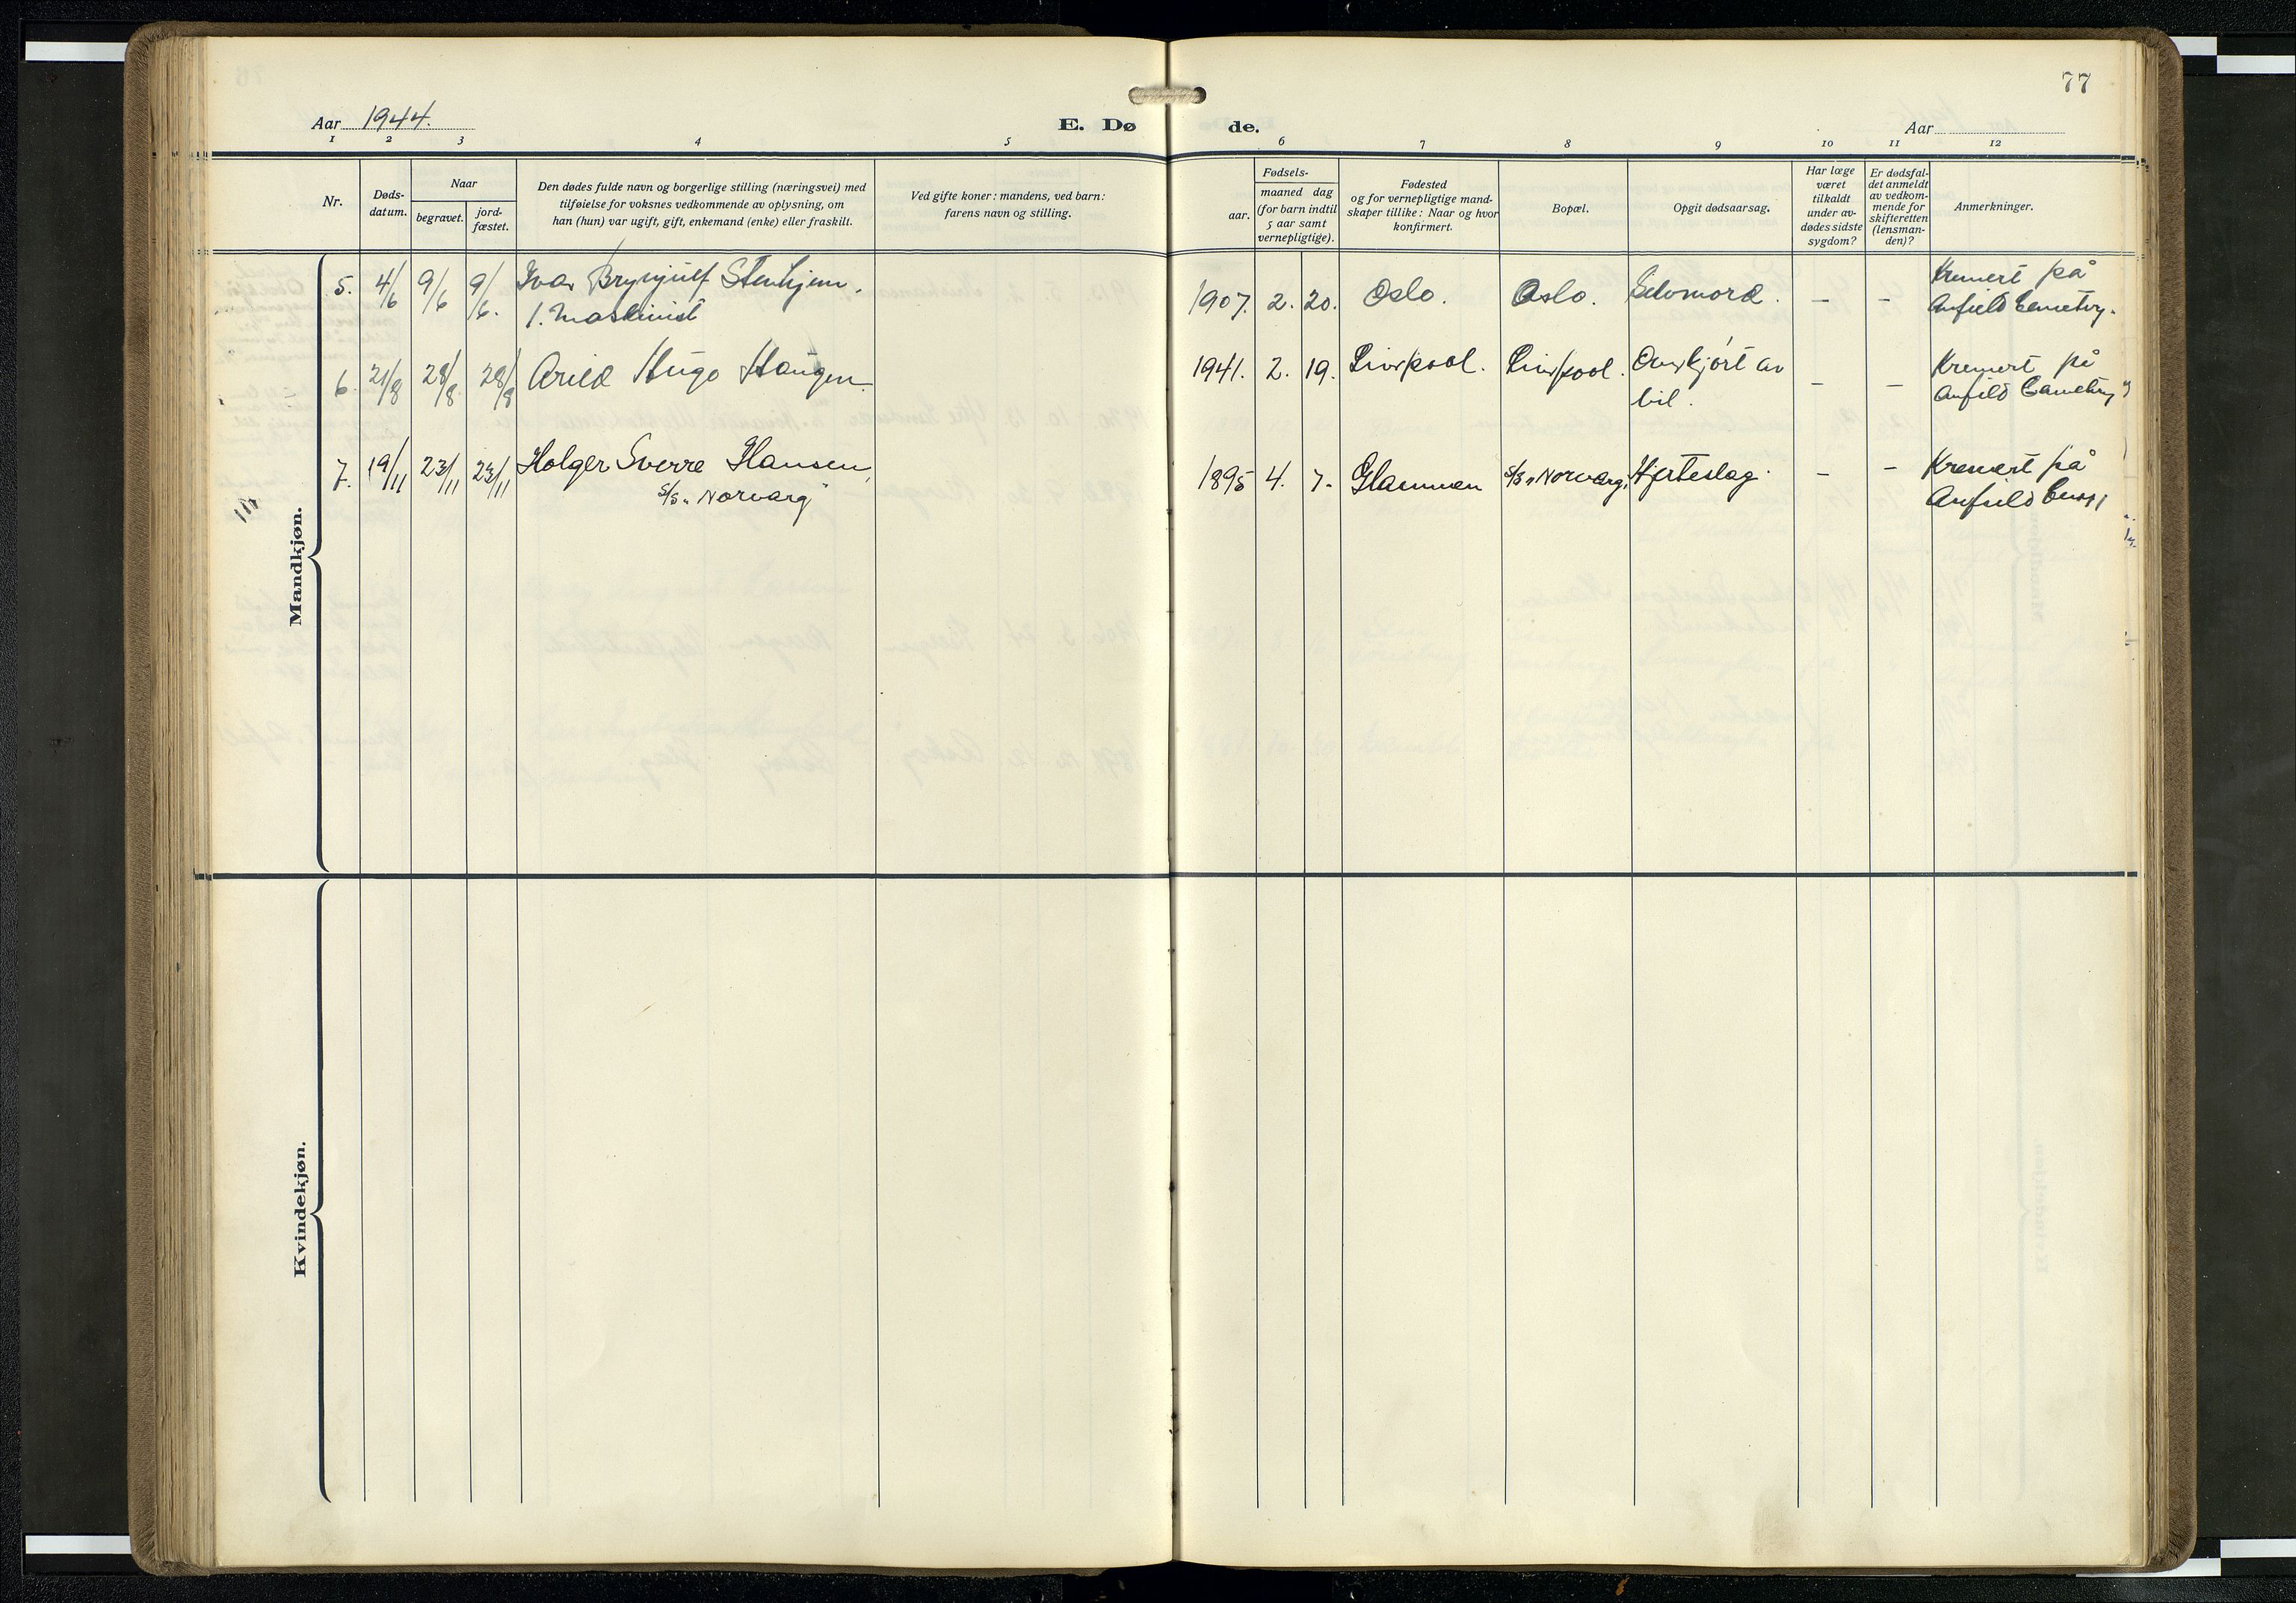 77
Aar 1944.
E. Dø de.
Aar
1 2 3 4 5 6 7 8 9 10 11 12
Nr.
Døds-
datum.
Naar
begravet.
jord-
fæstet.
Den dødes fulde navn og borgerlige stilling (næringsvei) med
tilføielse for voksnes vedkommende av oplysning, om
han (hun) var ugift, gift, enkemand (enke) eller fraskilt.
Ved gifte koner: mandens, ved barn:
farens navn og stilling.
Fødsels-
aar.
maaned dag
(for barn indtil
5 aar samt
vernepligtige).
Fødested
og for vernepligtige mand-
skaper tillike: Naar og hvor
konfirmert.
Bopæl.
Opgit dødsaarsag.
Har læge
været
tilkaldt
under av-
dødes sidste
sygdom?
Er dødsfal-
det anmeldt
av vedkom-
mende for
skifteretten
(lensman-
den)?
Anmerkninger.
Mandkjøn.
5. 4/6 9/6 9/6. Ivar Brynjulf Stenhjem. 1907. 2. 20. Oslo. Oslo. Selvmord. – – Kremert på
1. Maskinist Anfield Cemetry.
6. 21/8 28/8 28/8 Arild Hugo Haugen. 1941. 2. 19. Liverpool. Liverpool. Overkjørt av – – Kremert på
bil. Anfild Cemetry
7. 19/11 23/11 23/11 Holger Sverre Hansen, 1895 4. 7. Glemmen s/s "Norvarg" Hjerteslag. – – Kremert på
s/s "Norvarg" Anfield
Kvindekjøn.